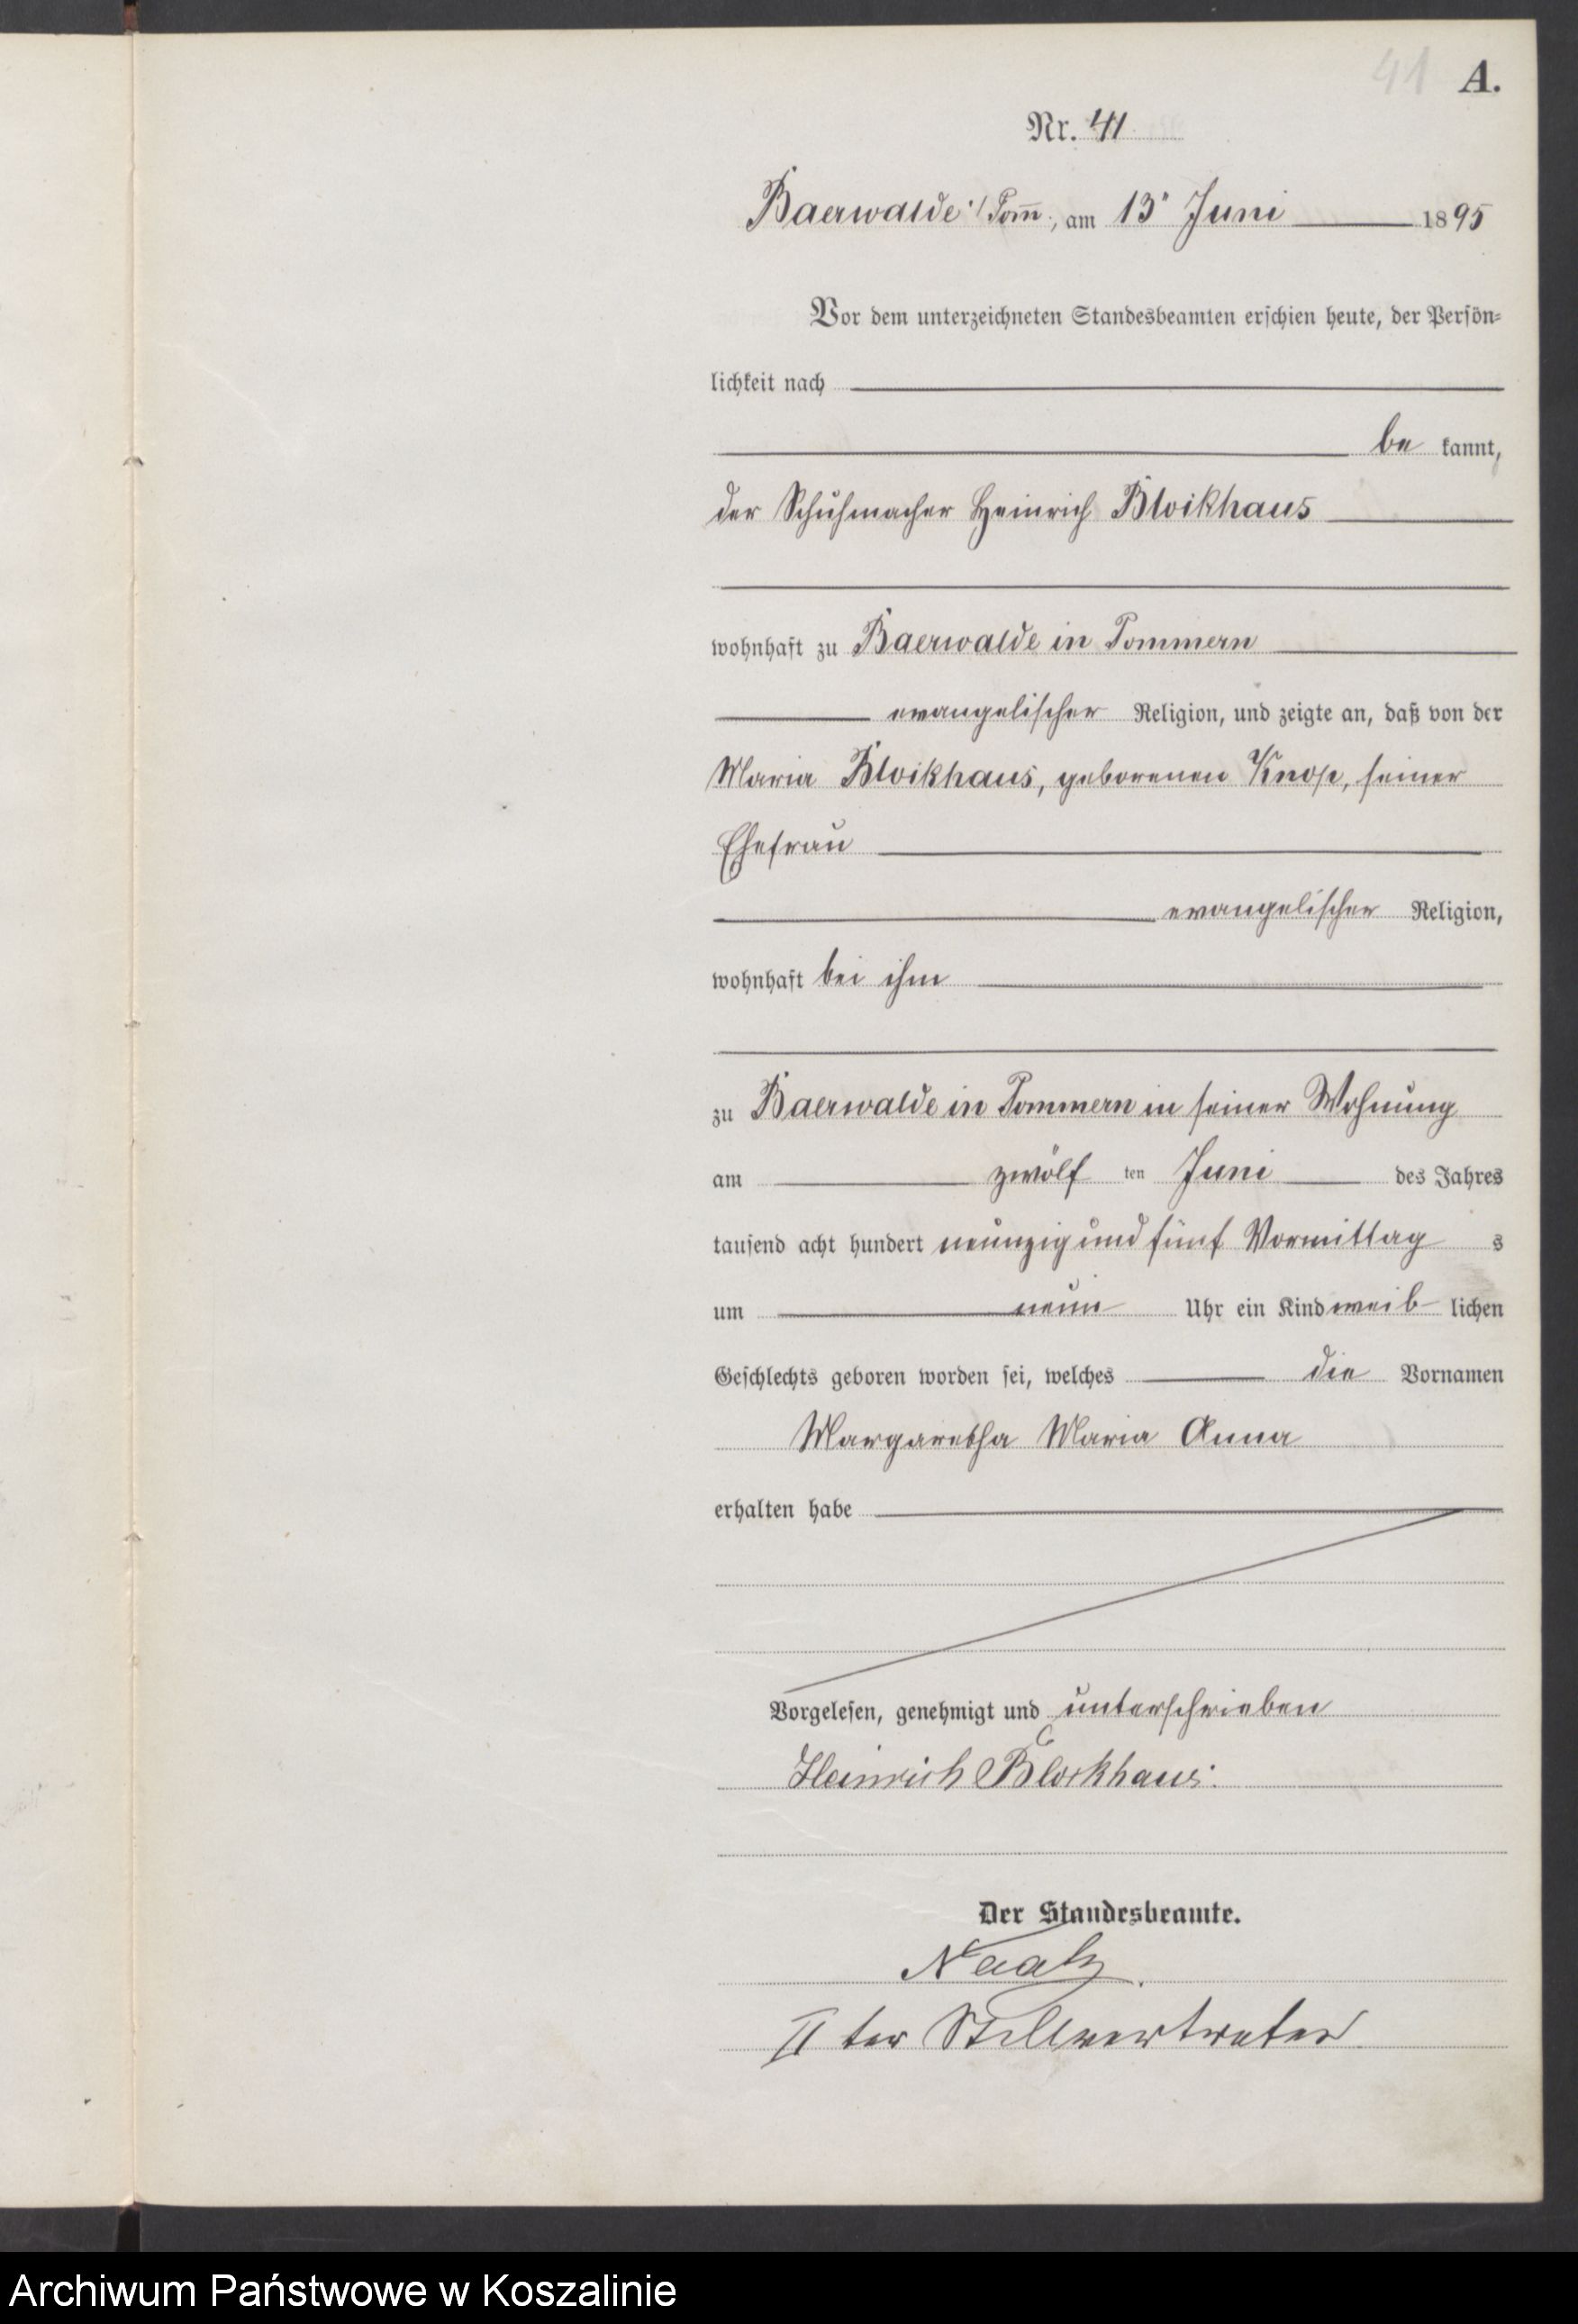 41 A.
Nr. 41
Baerwalde i/Pom̅., am 13ⁿ Juni 1895
Vor dem unterzeichneten Standesbeamten erschien heute, der Persön-
lichkeit nach
be kannt,
der Schuhmacher Heinrich Blockhaus
wohnhaft zu Baerwalde in Pommern
evangelischer Religion, und zeigte an, daß von der
Maria Blockhaus, geborenen Knop, seiner
Ehefrau
evangelischer Religion,
wohnhaft bei ihm
zu Baerwalde in Pommern in seiner Wohnung
am zwölf ten Juni des Jahres
tausend acht hundert neunzig und fünf Vormittag s
um neun Uhr ein Kind weib lichen
Geschlechts geboren worden sei, welches die Vornamen
Margaretha Maria Anna
erhalten habe
Vorgelesen, genehmigt und unterschrieben
Heinrich Blockhaus.
Der Standesbeamte.
Naatz.
II ter Stellvertreter
Archiwum Państwowe w Koszalinie